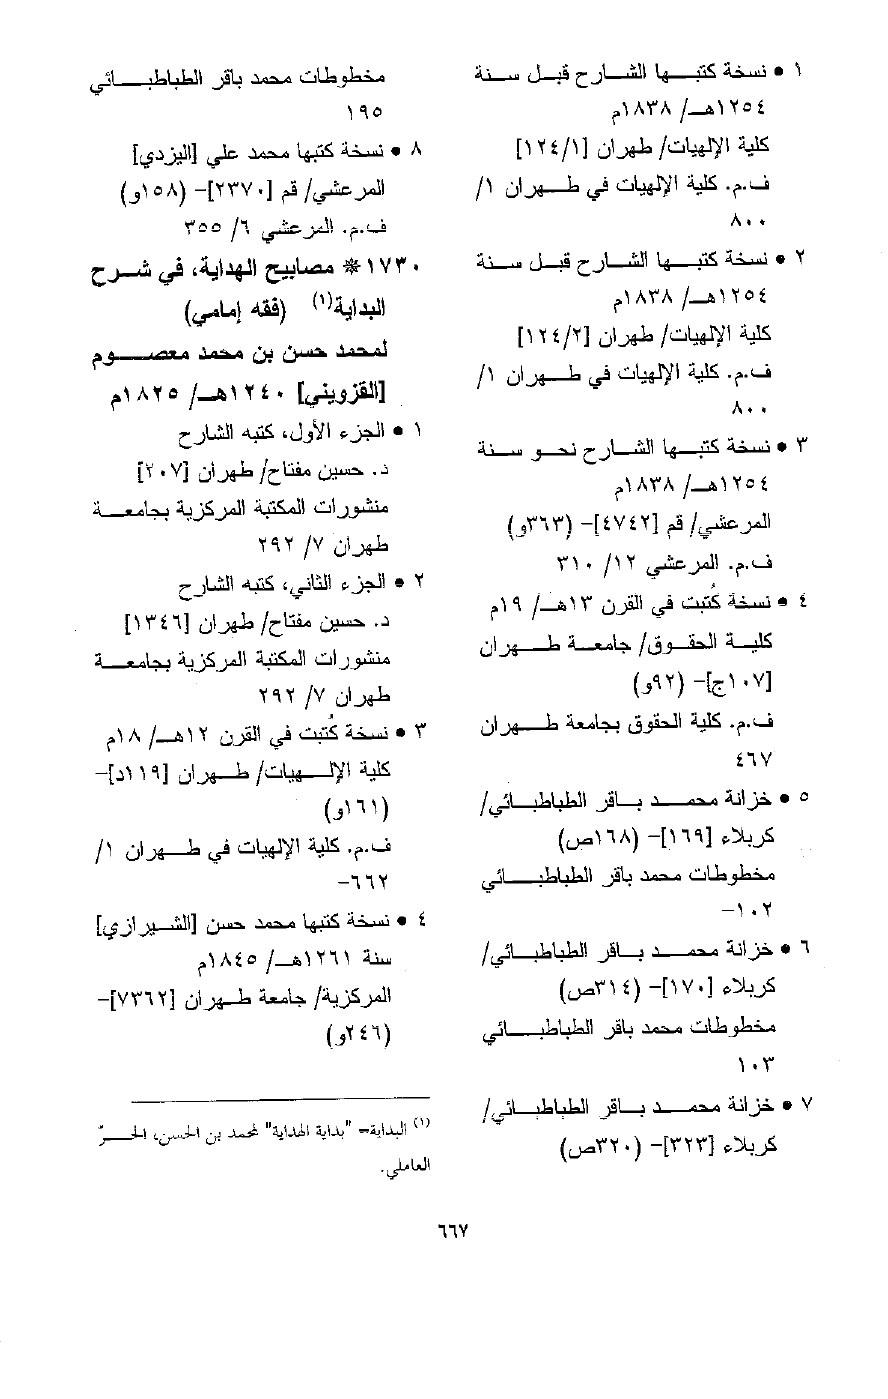 ١ • نسخة كتبـــها الشـــارح قبـل ســنة
١٢٥٤هــ/ ١٨٣٨م
كلية الإلهيات/ طهران [١٢٤/١]
ف.م. كلية الإلهيات في طــهران ١/
٨٠٠
٢ • نسخة كتبـــها الشارح قبــل ســنة
١٢٥٤هــ/ ١٨٣٨م
كلية الإلهيات/ طهران [١٢٤/٢]
ف.م. كلية الإلهيات في طــهران ١/
٨٠٠
٣ • نسخة كتبـــها الشــارح نحــو ســنة
١٢٥٤هــ/ ١٨٣٨م
المرعشي/ قم [٤٧٤٢]- (٣٦٣و)
ف.م. المرعشي ١٢/ ٣١٠
٤ • نسخة كُتبت في القرن ١٣هــ/ ١٩م
كليــة الحقــوق/ جامعــة طــهران
[١٠٧ج]- (٩٢و)
ف.م. كلية الحقوق بجامعة طــهران
٤٦٧
٥ • خزانة محمــد بــاقر الطباطبــائي/
كربلاء [١٦٩]- (١٦٨ص)
مخطوطات محمد باقر الطباطبــائي
١٠٢-
٦ • خزانة محمــد بــاقر الطباطبــائي/
كربلاء [١٧٠]- (٣١٤ص)
مخطوطات محمد باقر الطباطبــائي
١٠٣
٧ • خزانة محمــد بــاقر الطباطبــائي/
كربلاء [٣٢٣]- (٣٢٠ص)
مخطوطات محمد باقر الطباطبــائي
١٩٥
٨ • نسخة كتبها محمد علي [اليزدي]
المرعشي/ قم [٢٣٧٠]- (١٥٨و)
ف.م. المرعشي ٦/ ٣٥٥
١٧٣٠ * مصابيح الهداية، في شــرح
البداية(١) (فقه إمامي)
لمحمد حسن بن محمد معصــوم
[القزويني] ١٢٤٠هــ/ ١٨٢٥م
١ • الجزء الأول، كتبه الشارح
د. حسين مفتاح/ طهران [٢٠٧]
منشورات المكتبة المركزية بجامعــة
طهران ٧/ ٢٩٢
٢ • الجزء الثاني، كتبه الشارح
د. حسين مفتاح/ طهران [١٣٤٦]
منشورات المكتبة المركزية بجامعــة
طهران ٧/ ٢٩٢
٣ • نسخة كُتبت في القرن ١٢هــ/ ١٨م
كلية الإلــهيات/ طــهران [١١٩د]-
(١٦١و)
ف.م. كلية الإلهيات في طــهران ١/
٦٦٢-
٤ • نسخة كتبها محمد حسن [الشيرازي]
سنة ١٢٦١هــ/ ١٨٤٥م
المركزية/ جامعة طــهران [٧٣٦٢]-
(٢٤٦و)
(١) البداية= "بداية الهداية" لمحمد بن الحسن، الحــرّ
العاملي.
٦٦٧